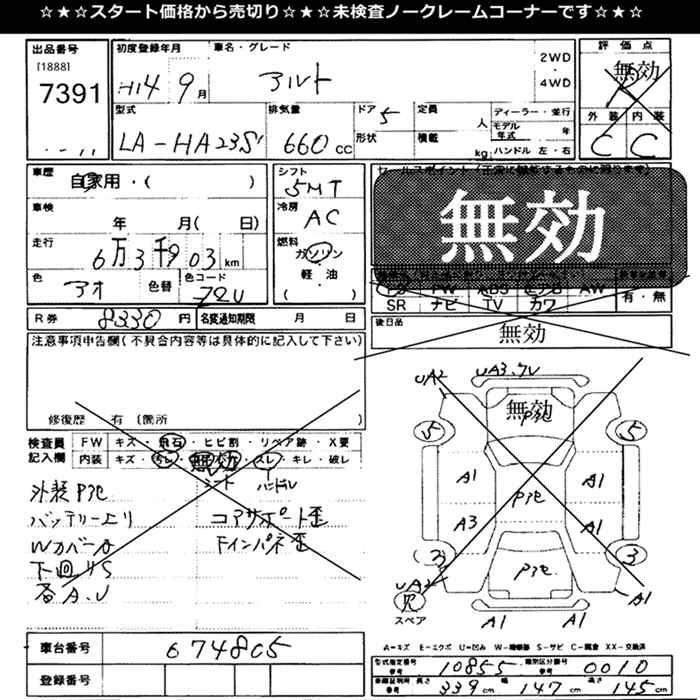 ☆★☆スタート価格から売切り☆★☆未検査ノークレームコーナーです☆★☆
出品番号 初度登録年月 車名・グレード 評価点
[1888]
7391 H14 9月 アルト 2WD ・ 4WD 無効
型式 排気量 ドア 定員 ディーラー・並行 外装 内装
LA-HA23S 660cc 5 人 モデル年式 年 C C
形状 積載 kg ハンドル 左・右
車歴 自家用・( ) シフト 5MT セールスポイント
車検 年 月( 日) 冷房 AC 無効
走行 6万3千903km 燃料 ガソリン
軽・油
( )
色 アオ 色替 色コード Z2U
SR ナビ TV カワ 有・無
R券 8330円 名変通知期限 月 日 後日品 無効
注意事項申告欄(不具合内容等は具体的に記入して下さい)
修復歴 有 〔箇所
検査員記入欄 FW キズ・飛石・ヒビ割・リペア跡・X要
内装 キズ・汚レ・ ・スレ・キレ・破レ
無効
シート ハンドル
外装Pコセ
バッテリー上リ コアサポート歪
Wカバーナ Fインパネ歪
下回リS
各A.U
UA2 UA3.ワレ
無効
Pコセ
5 5
A1 A1
Pコセ
A3 A1
3 3
Pコセ
UA2 A1
スペア A1 A1
A=キズ E=エクボ U=凹み S=サビ C=腐食 XX=交換済
車台番号 674805
登録番号
型式指定番号 参考 10855 類別区分番号 参考 0010
車検証明用 参考 長さ 339cm 幅 147cm 高さ 145cm